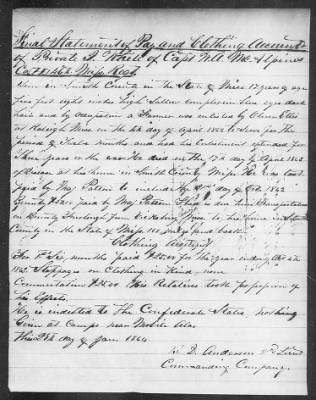 Final Statement of Pay and Clothing Account
of Private J. Wall of Capt W. A. McAlpin
Co. 46th Miss Regt
Born in Smith County in the State of Miss 17 years of age
five feet eight inches high Sallow complexion blue eyes dark
hair and by occupation a Farmer was enlisted by
at Raleigh Miss on the 5th day of April 1862 to serve for the
period of Twelve months and had his enlistment extended for
three years or the war He died on the 17th day of April 1863
of disease at his home in Smith County Miss He was last
paid by Maj Patton to include the 31st day of Oct 1862
Bounty paid by Maj Patton There is due him Transportation
in County through from Vicksburg Miss to his home in Smith
County in the State of Miss and back
Clothing Account
For six months paid for the year ending
1862 Stoppages on Clothing in Kind, none
Commutation His Relatives took possession of
his effects
He is indebted to The Confederate States, nothing
Given at Camp near Mobile Ala
This day of Jan 1864
D. Anderson Lieut
Commanding Company